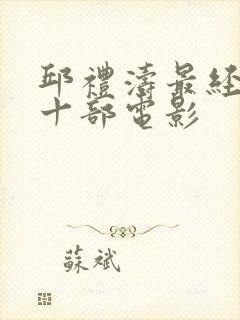 邱禮濤最經
十部電影
蘇斌